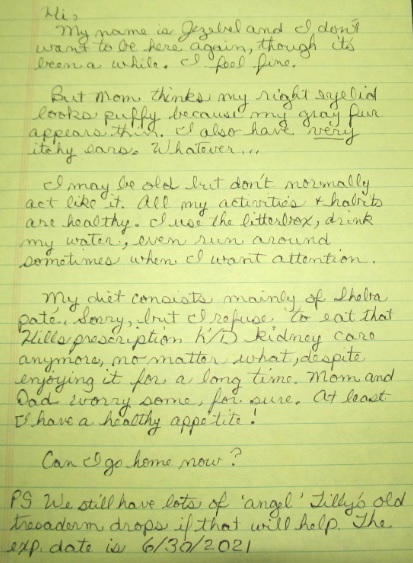 Hi,
My name is Jezebel and I don't
want to be here again, though its
been a while. I feel fine.
But Mom thinks my right eyelid
looks puffy because my gray fur
appears thin. I also have very
itchy ears. Whatever...
I may be old but don't normally
act like it. All my activities + habits
are healthy. I use the litterbox, drink
my water, even run around
sometimes when I want attention.
My diet consists mainly of Sheba
paté. Sorry, but I refuse to eat that
Hills prescription K/D kidney care
anymore, no matter what, despite
enjoying it for a long time. Mom and
Dad worry some, for sure. At least
I have a healthy appetite!
Can I go home now?
PS We still have lots of 'angel' Tilly's old
tresaderm drops if that will help. The
exp. date is 6/30/2021